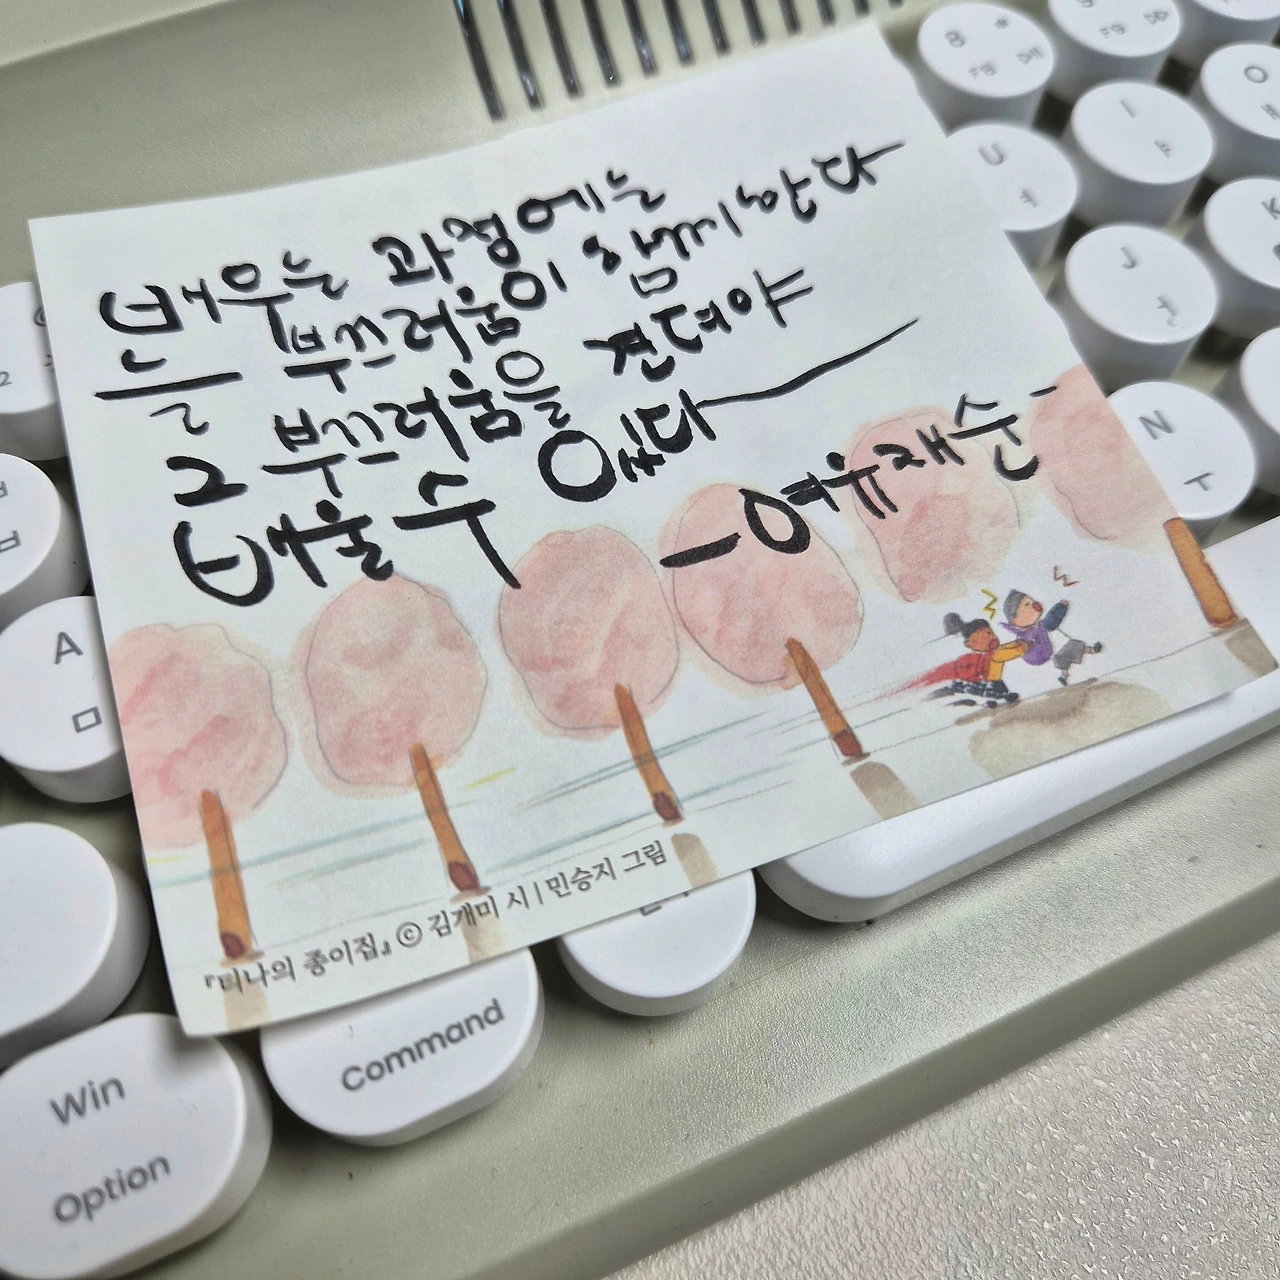 배우는 과정에는
늘 부끄러움이 함께 한다
그 부끄러움을 견뎌야
배울 수 있다
유재순
『티나의 종이집』 ⓒ 김개미 시 | 민승지 그림
8 * F8
F9
U ㅕ
I ㅑ
O
J ㅓ
K
N ㅜ
A ㅁ
Win
Option
command